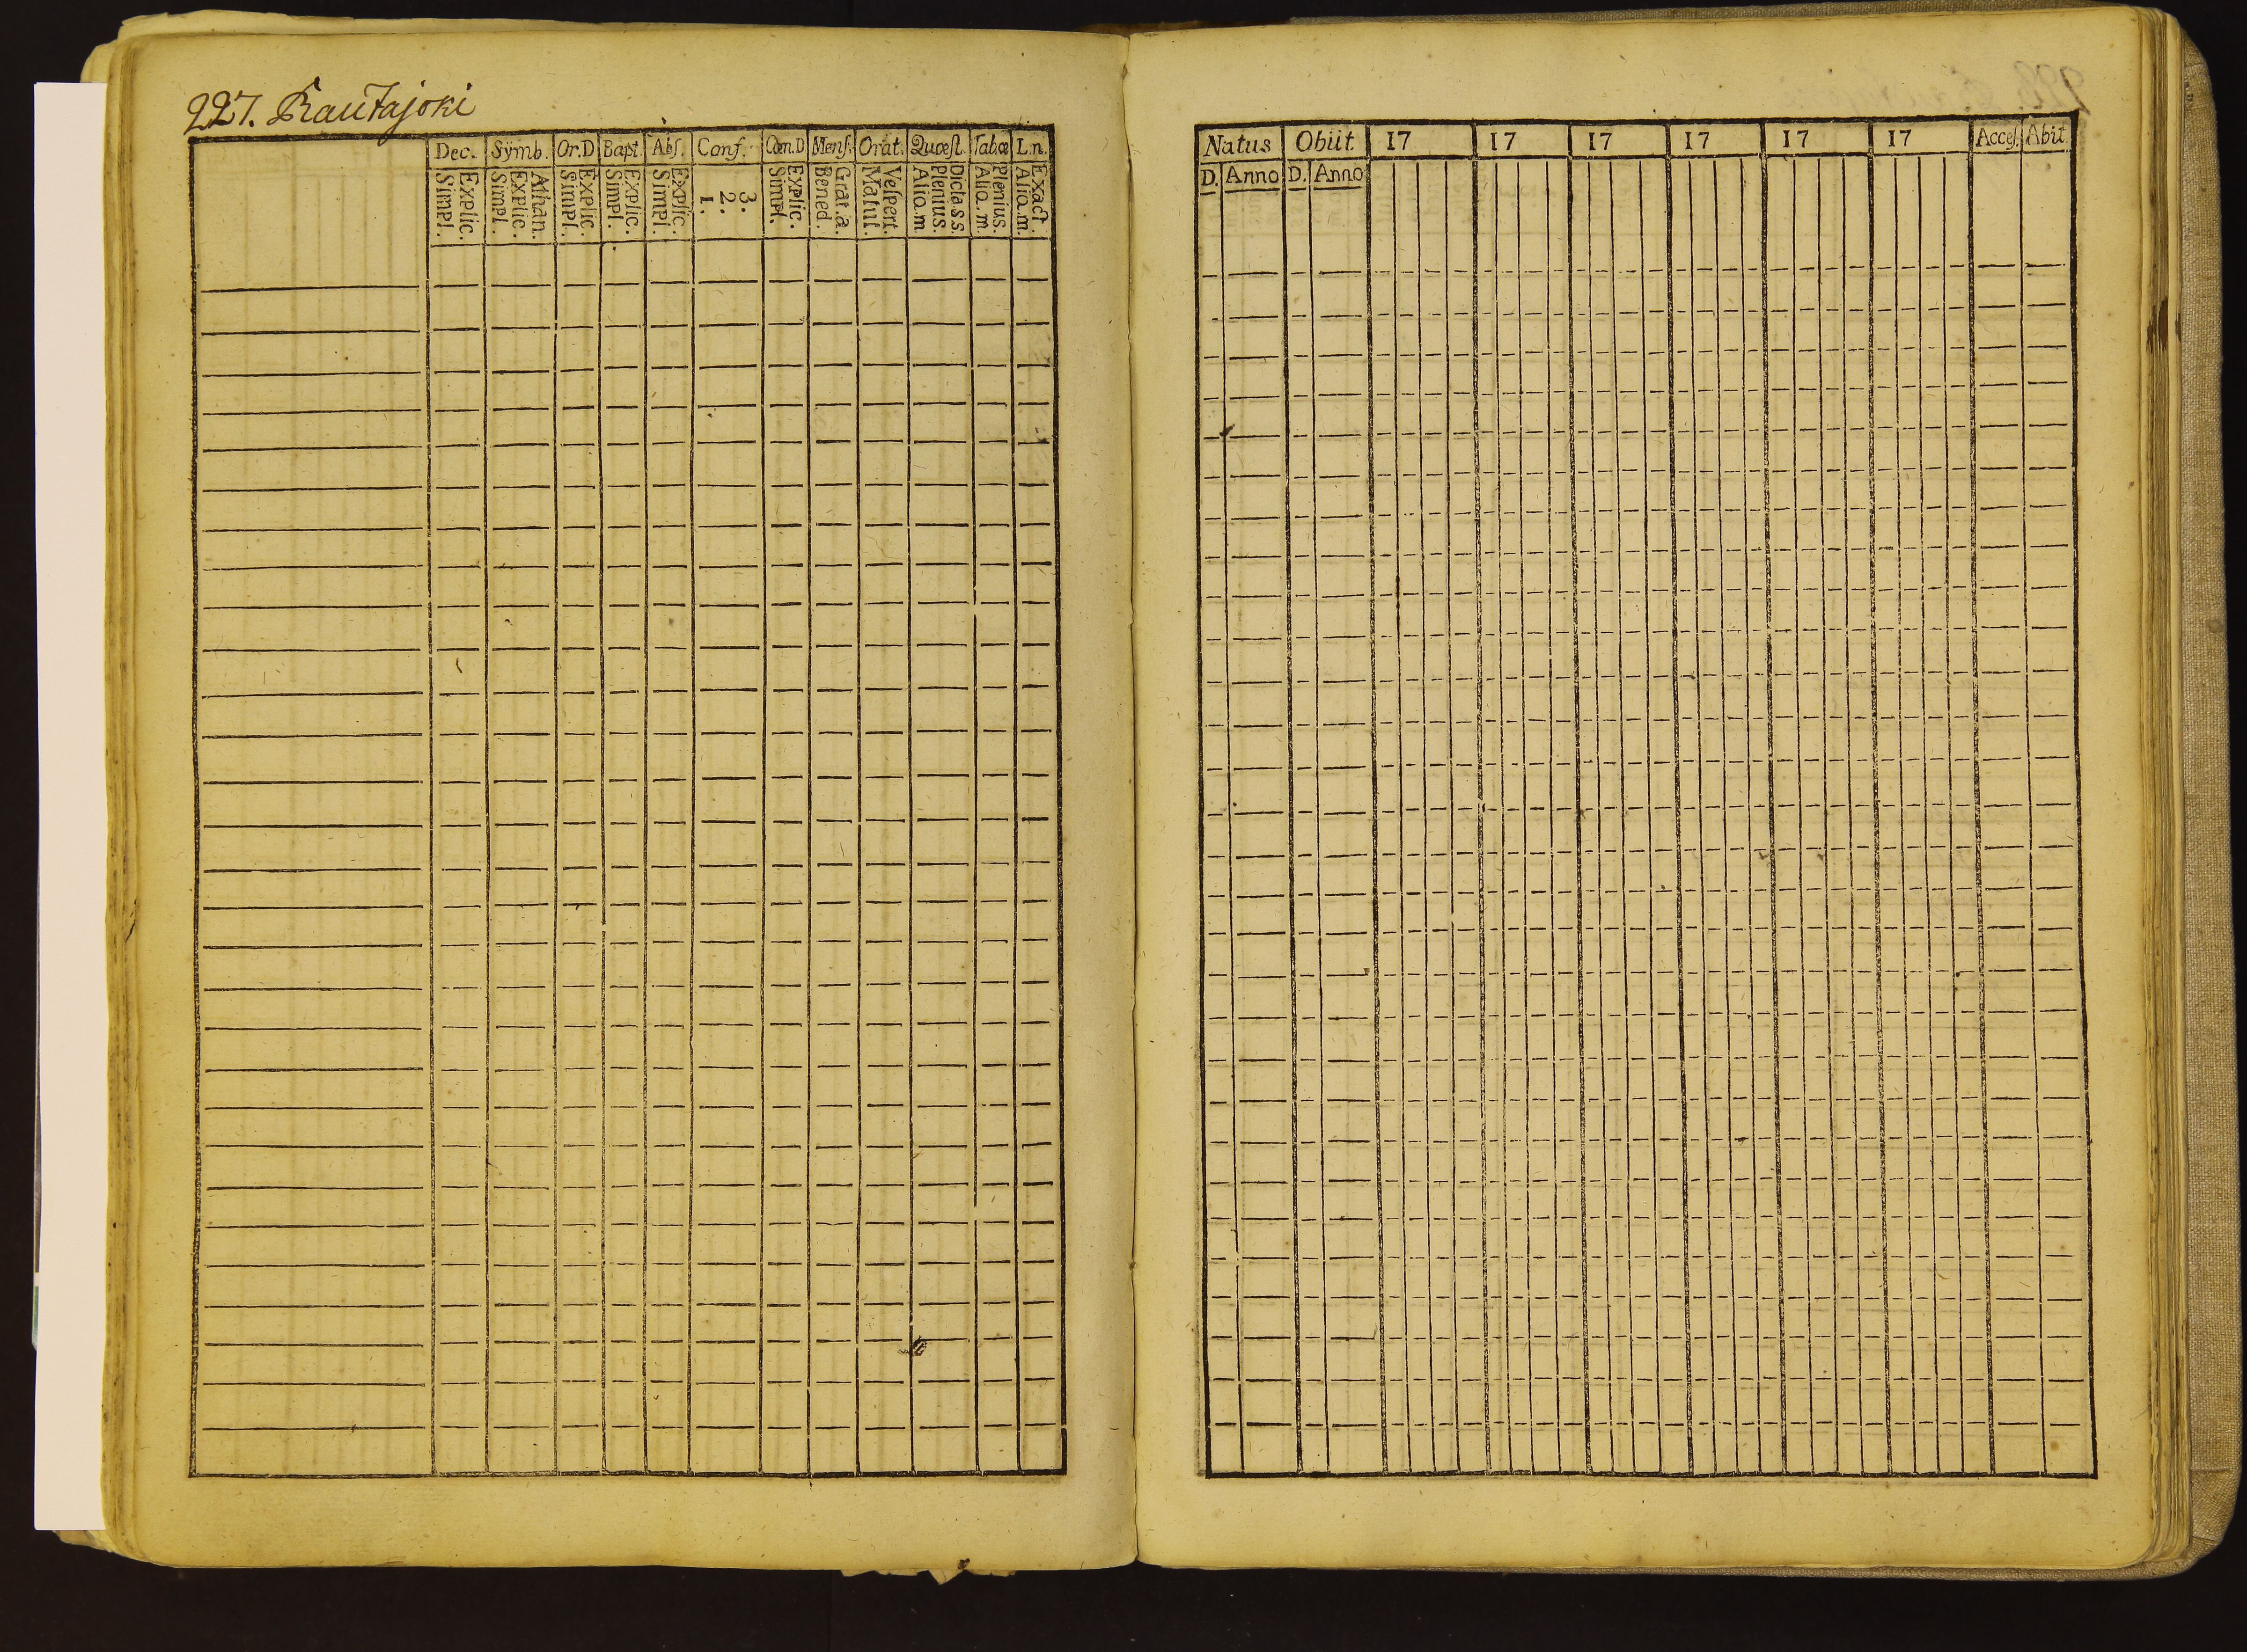 227. Rautajoki
Dec. Sÿmb. Or.D Bapt. Abſ. Conf. Cœn.D Menſ. Orat. Quœſt. Tab.œ L.n.
Simpl. Explic. Simpl. Explic. Athan. Simpl. Explic. Simpl. Explic. Simpl. Explic. 1. 2. 3. Simpl. Explic. Bened. Grat.a. Matut. Veſpert. Aliq.m Plenius. Dicta.S.S. Aliq.m. Plenius. Aliq.m. Exact.
Natus Obiit 17 17 17 17 17 17 Acceſ. Abit
D. Anno D. Anno